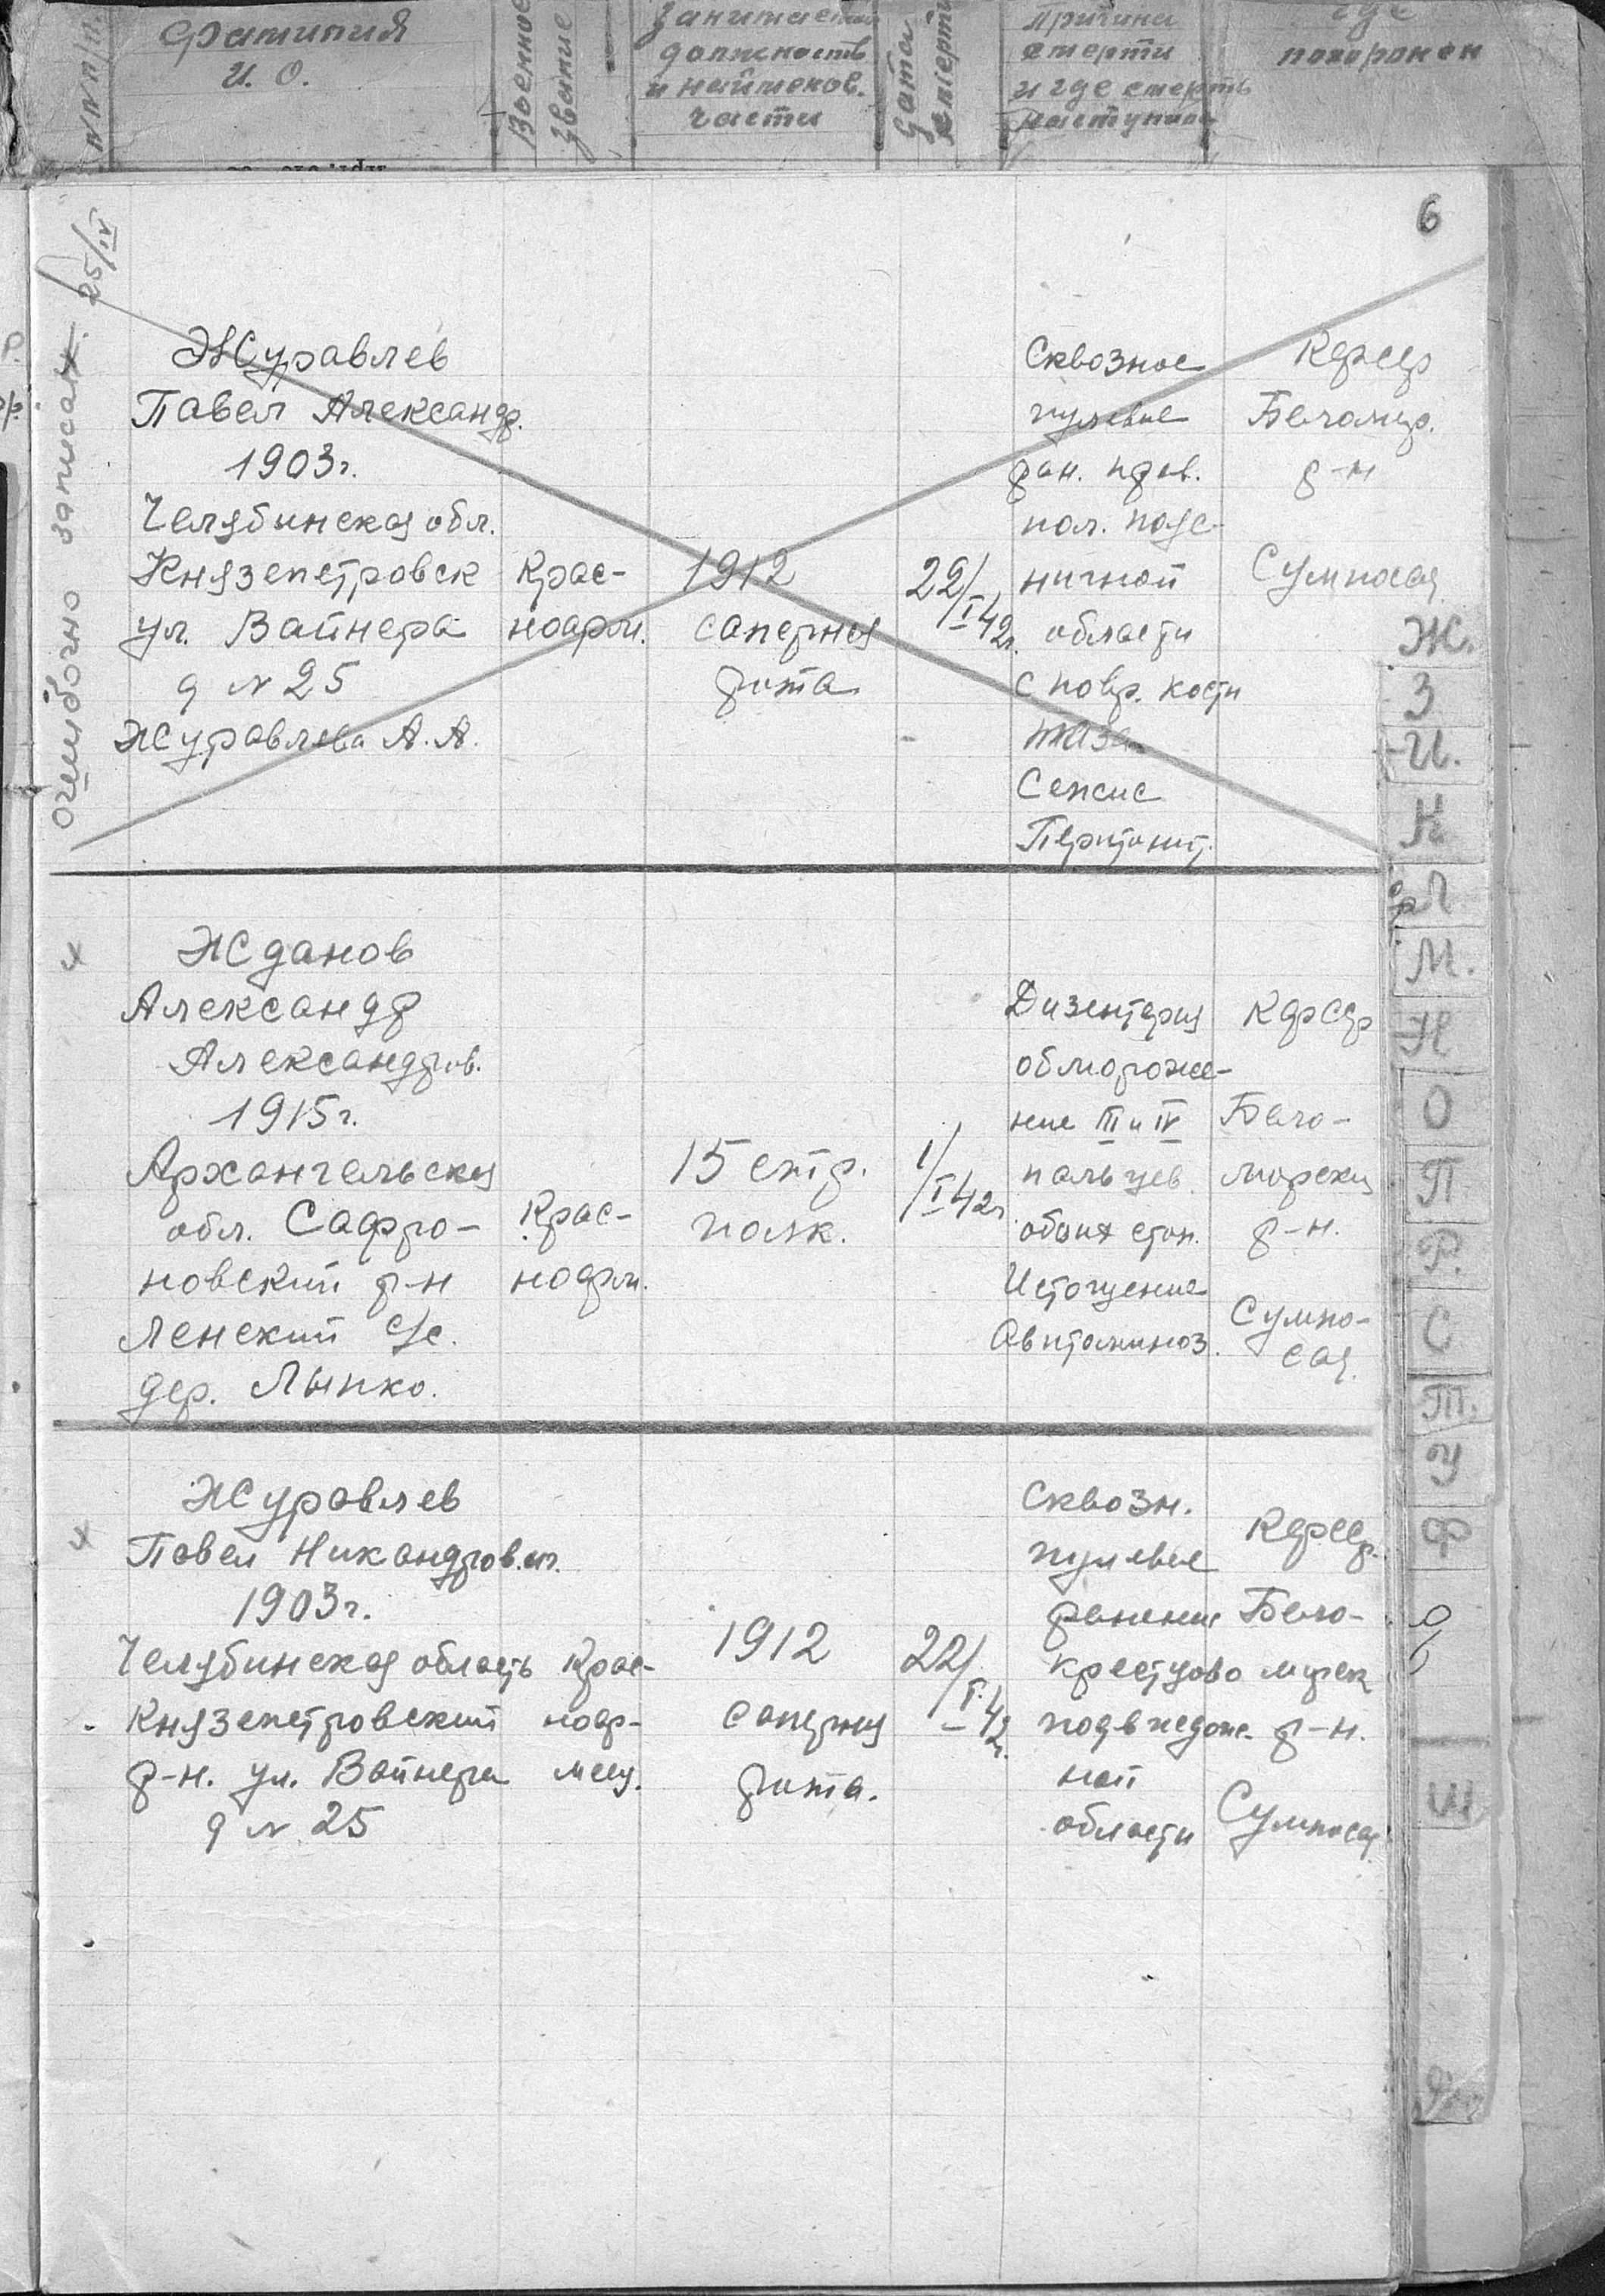 №№ п/п.
Фамилия
И. О.
Военное
звание
Занимаемая
должность
и наименов.
части
Дата
смерти
Причина
смерти
и где смерть
наступила
где
похоронен
6
ошибочно записан. 25/IV
Журавлев
Павел Александр.
1903г.
Челябинская обл.
Князепетровск
ул. Вайнера
д № 25
Журавлева А. А.
Крас-
ноарм.
1912
саперная
рота
22/I 42г.
Сквозное
пулевое
ран. прав.
пол. пояс-
ничной
области
с повр. кости
таза
Сепсис
Перитонит.
Кфсср
Беломор.
р-н
Сумпосад
Жданов
Александр
Александров.
1915г.
Архангельская
обл. Сафро-
новский р-н
Ленский с/с.
дер. Лыпко.
Крас-
ноарм.
15 стр.
полк.
1/I 42г
Дизентерия
обмороже-
ние III и IV
пальцев
обоих стоп.
Истощение
Авитаминоз.
Кфсср
Бело-
морский
р-н.
Сумпо-
сад.
Журавлев
Павел Никандров.ич.
1903г.
Челябинская область
Князепетровский
р-н. ул. Вайнера
д № 25
Крас-
ноар-
меец.
1912
саперная
рота.
22/I 42г.
Сквозн.
пулевое
ранение
крестцово
подвздош-
ной
области
Кфсср.
Бело-
морск
р-н.
Сумпосад
Ж.
З
И.
К
Л
М.
Н
О
П
Р.
С
Т.
У
Ф
Ш